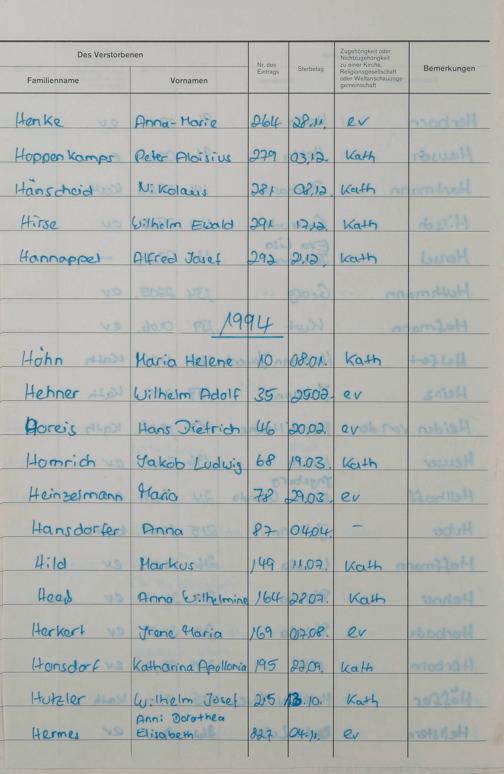 Des Verstorbenen
Familienname Vornamen Nr. des Eintrags Sterbetag Zugehörigkeit oder Nichtzugehörigkeit zu einer Kirche, Religionsgesellschaft oder Weltanschauungsgemeinschaft Bemerkungen
Henke Anna-Marie 264 28.11. ev
Hoppenkamps Peter Aloisius 279 03.12. Kath
Hänscheid Nikolaus 281 08.12. Kath
Hirse Wilhelm Ewald 291 17.12. Kath
Hannappel Alfred Josef 292 21.12. Kath
1994
Höhn Maria Helene 10 08.01. Kath
Hehner Wilhelm Adolf 35 25.02. ev
Horeis Hans Dietrich 46 20.02. ev
Homrich Jakob Ludwig 68 19.03. Kath
Heinzelmann Maria 78 29.03. ev
Hansdorfer Anna 87 04.04. –
Hild Markus 149 11.07. Kath
Heep Anna Wilhelmine 164 28.07. Kath
Herkert Irene Maria 169 07.08. ev
Honsdorf Katharina Apollonia 195 Kath
Hutzler Wilhelm Josef 215 13.10. Kath
Anni Dorothea
Hermes Elisabeth 04.11. ev